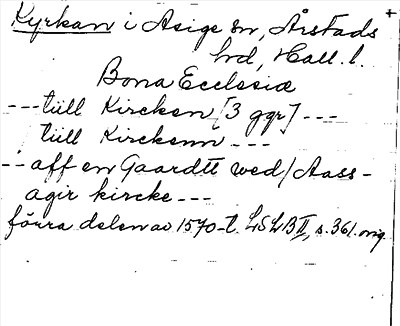 Kyrkan i Asige sn, Årstads
hrd, Hall. l.
Bona Ecclesiæ
--- tiill Kircken [3 ggr] ---
tiill Kirckenn ---
-- aff en Gaardtt wed / Aass-
agir kircke ---
förra delen av 1570-t. LSLB II, s. 361. orig.